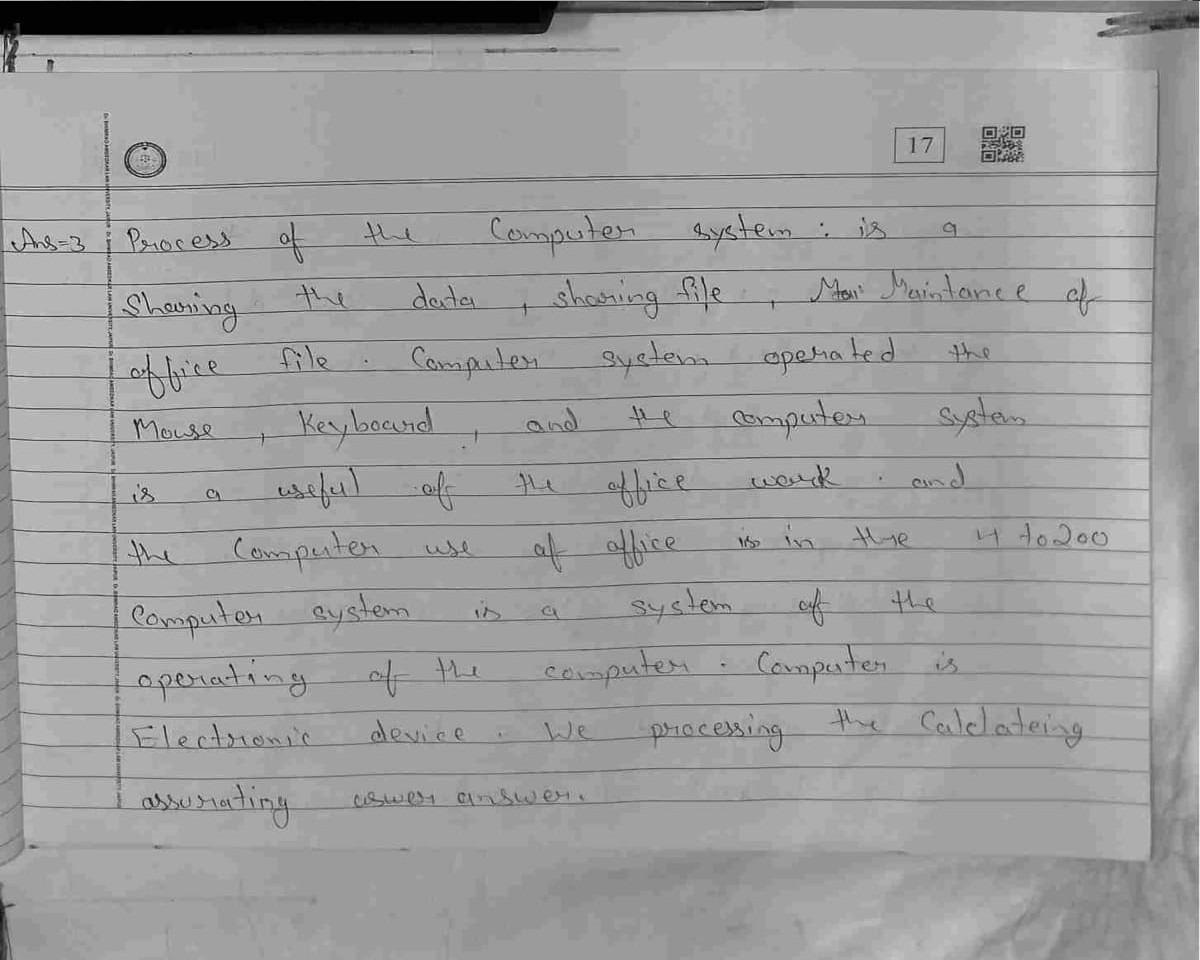 17
Ans=3 Process of the Computer system : is a
Sharing the data , sharing file , Mai Maintance of
office file . Computer system operated the
Mouse , Keyboard , and the computer system
is a useful of the office work . and
the Computer use of office is in the 4 to 200
Computer system is a system of the
operating of the computer . Computer is
Electronic device . We processing the Calclateing
assurating aswer answer.